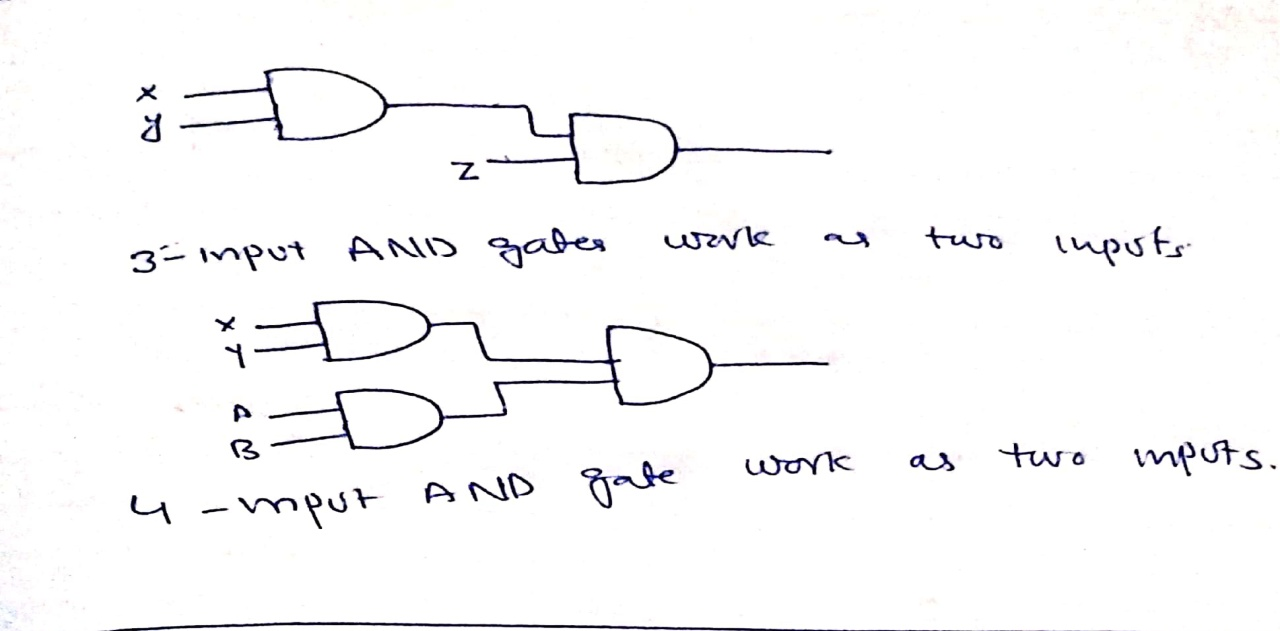 x
y
z
3-input AND gates work as two inputs.
x
Y
A
B
4-input AND gate work as two inputs.